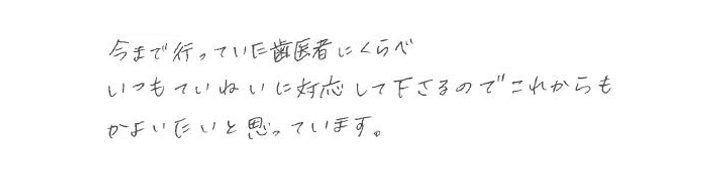 今まで行っていた歯医者にくらべ
いつもていねいに対応して下さるのでこれからも
かよいたいと思っています。